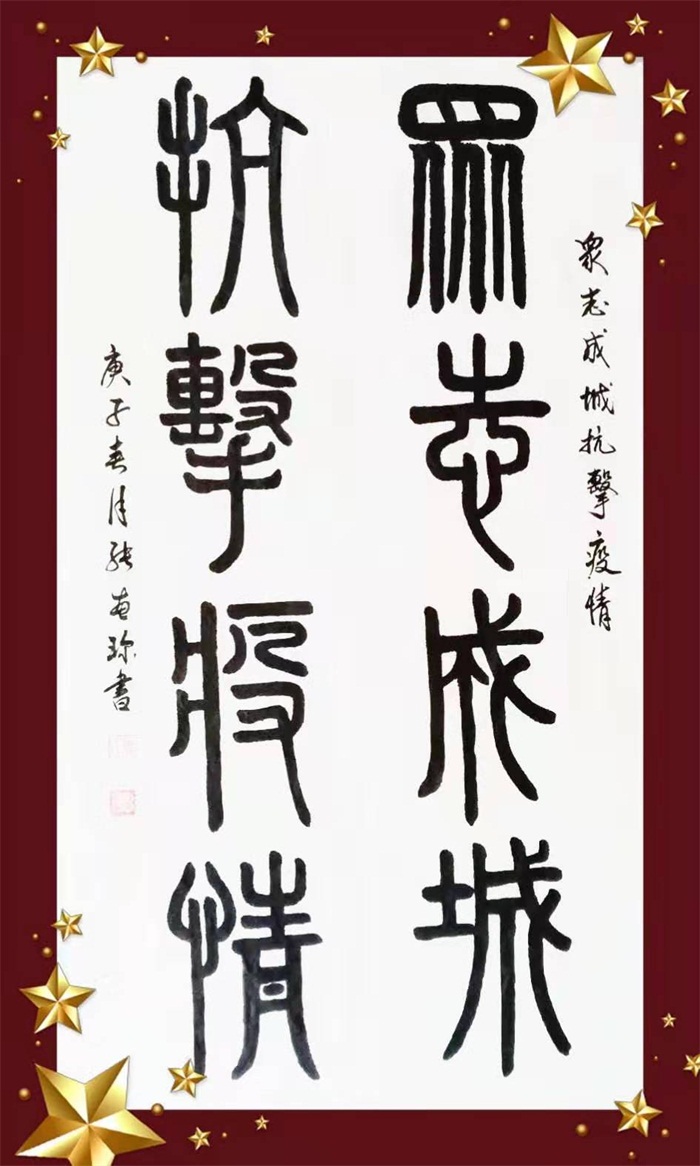 眾志成城抗擊疫情
眾志成城
抗擊疫情
庚子春月張珍書